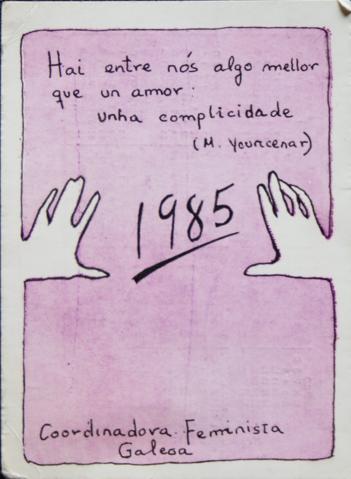 Hai entre nós algo mellor
que un amor:
unha complicidade
(M. Yourcenar)
1985
Coordinadora Feminista
Galega